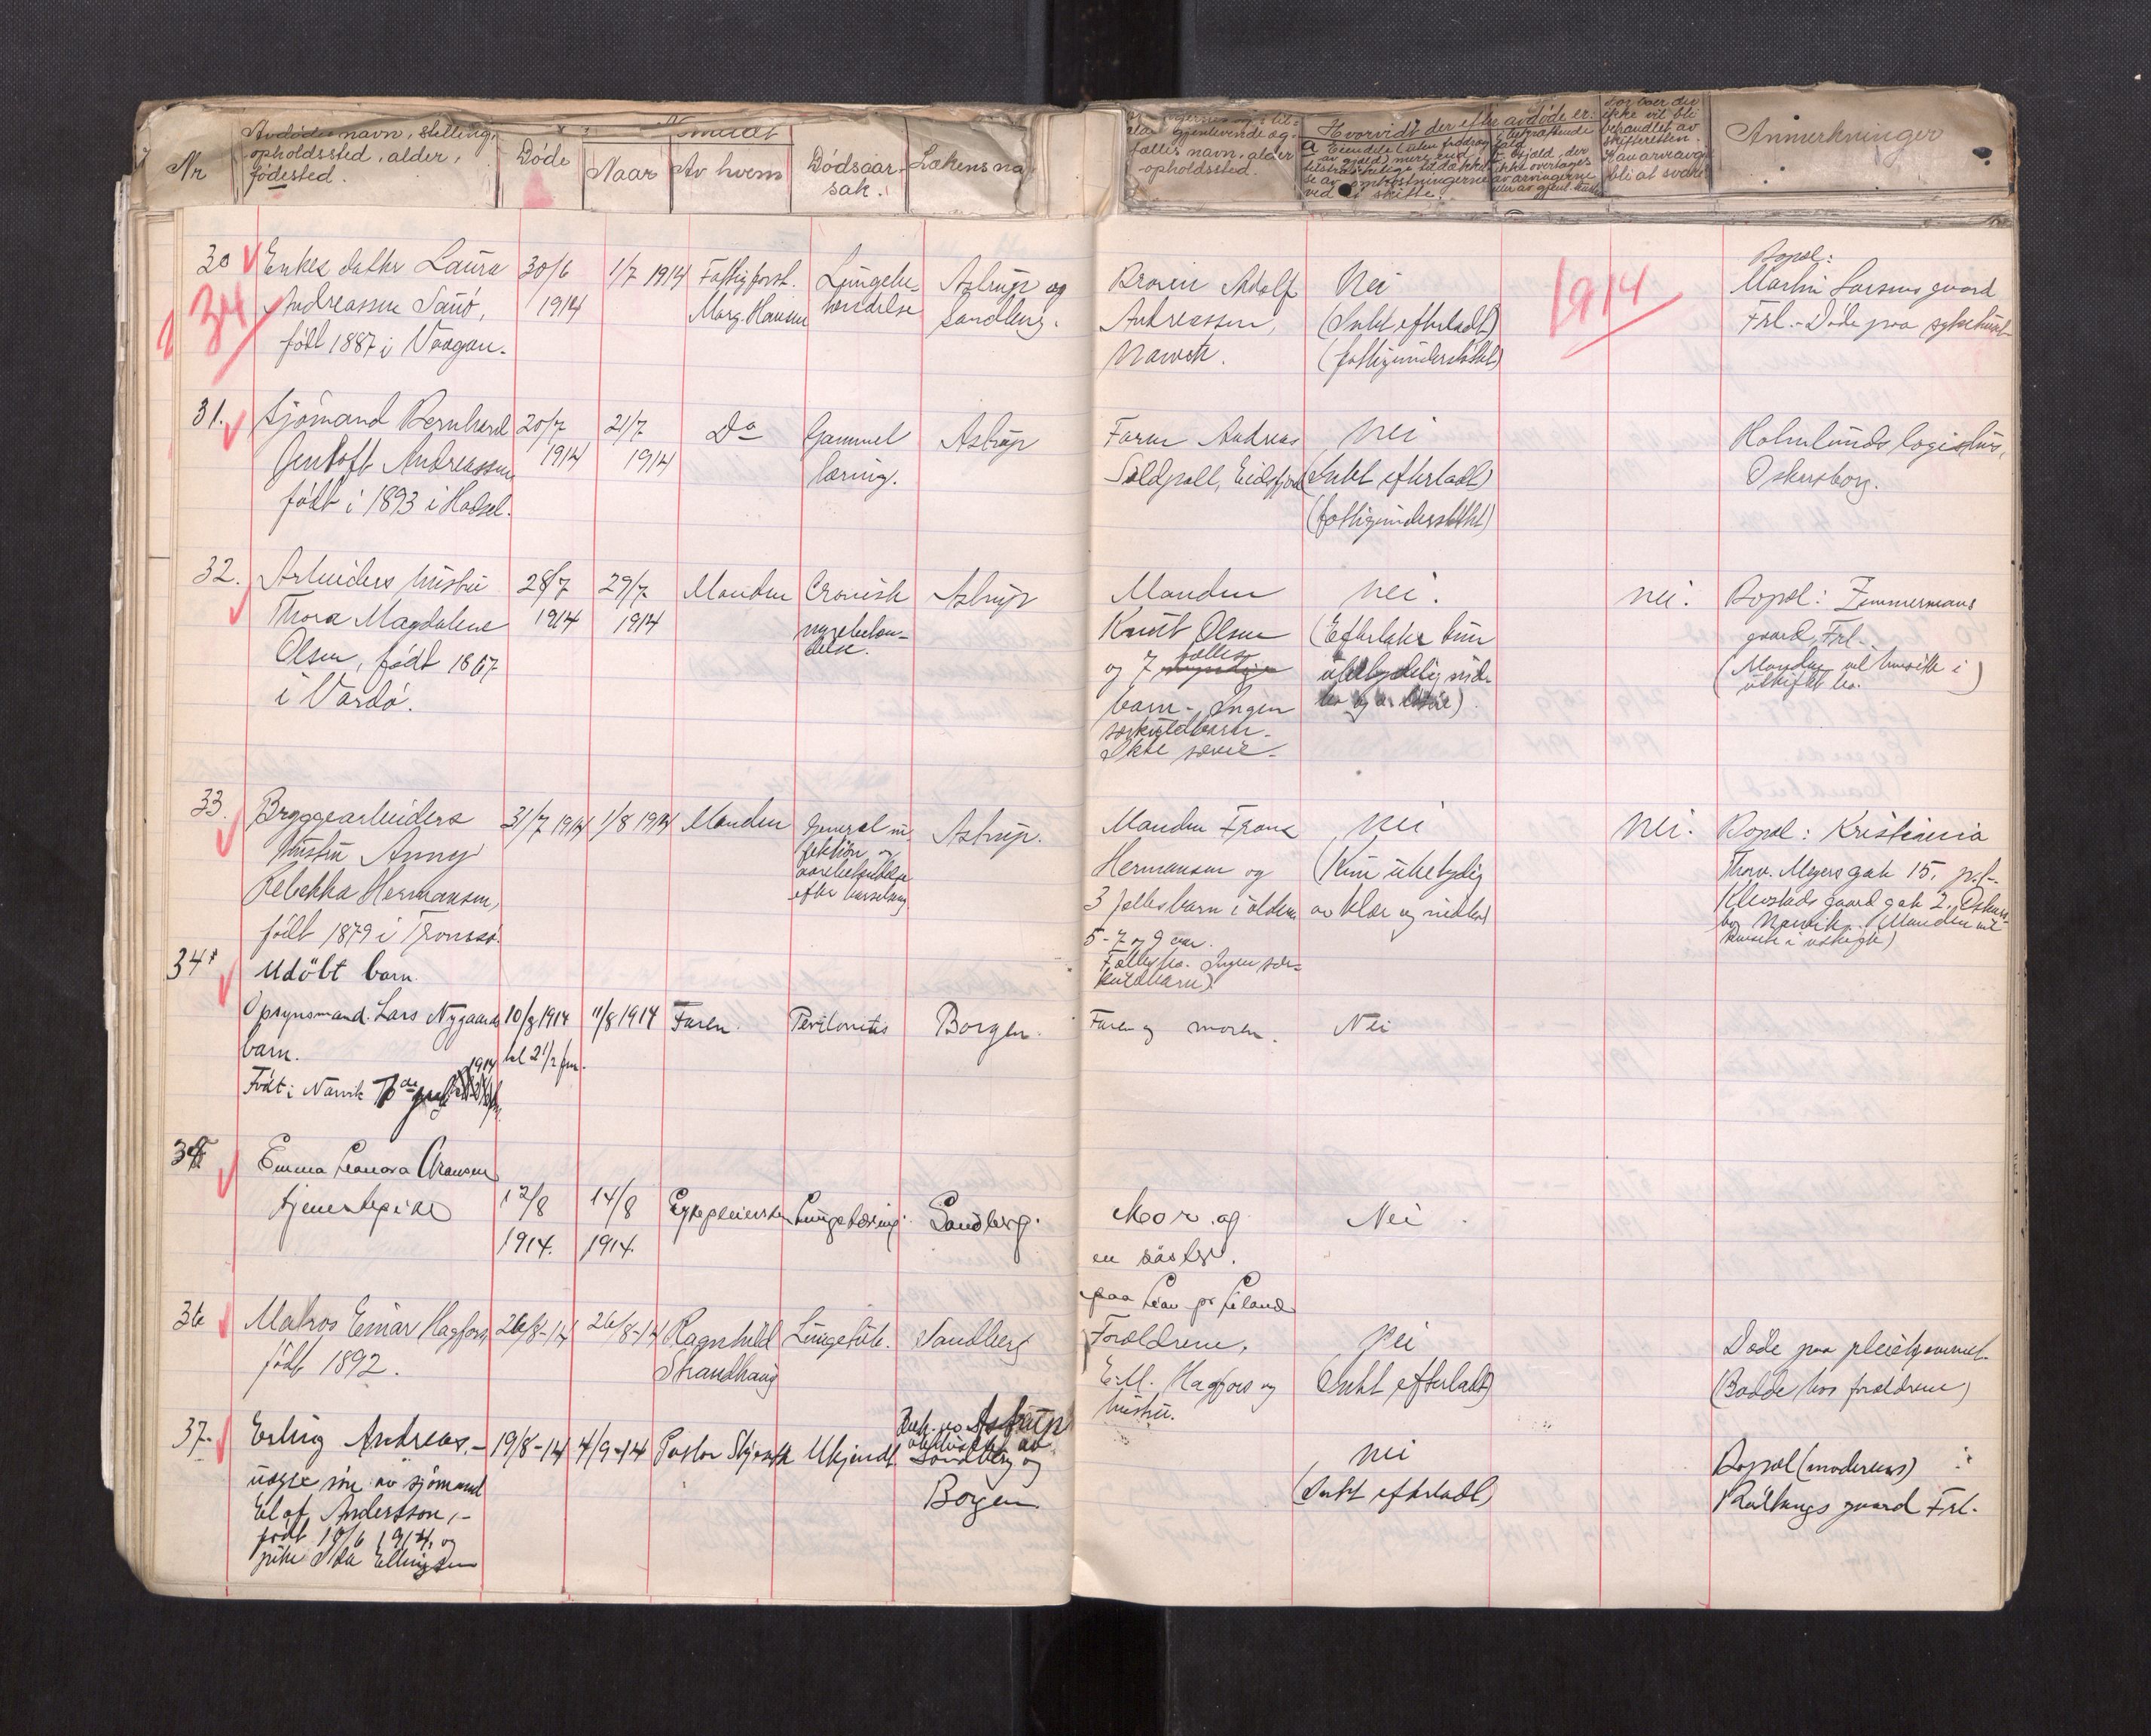 Nr
Avdødes navn, stilling,
opholdssted, alder,
fødested.
Døde
Anmeldt
Naar
Av hvem
Dødsaar-
sak.
Lækens na
gjenlevende æg-
tefælles navn, alder
opholdssted.
Hvorvidt der efter avdøde er:
a Eiendele (uten fradrag
av gjæld) mere end
tilstrækkelige til dække
se av omkostningerne
ved et skifte.
ikke overtages
av arvingerne
ikke vil bli
behandlet av
skifteretten.
Anmerkninger
30
34
Enkes datter Laura
Andreassen Sanø,
født 1887 i Vaagan.
30/6
1914
1/7 1914
Fattigforst.
Marg. Hansen
Lungebe-
tændelse
Astrup og
Sandberg.
Broren Adolf
Andreassen,
Narvik.
Nei
(Intet efterladt)
(fattigunderstøttet)
1914
Bopæl:
Martin Larsens gaard
Frl. - Døde paa sykehuset
31.
Sjømand Bernhard
Gentoft Andreassen
født i 1893 i Hadsel.
20/7
1914
21/7
1914
Do
Gammel
tæring.
Astrup
Faren Andreas
Soldpall, Eidsfjord
Nei
(Intet efterladt)
(fattigunderstøttet)
Holmlunds logishus,
Oskarsborg.
32.
Arbeiders hustru
Thora Magdalene
Olsen, født 1867
i Vardø.
28/7
1914
29/7
1914
Manden
Cronisk
nyrebeten-
delse.
Astrup
Manden
Knut Olsen
og 7 fælles
barn - Ingen
særkuldbarn.
Ikke særeie -
Nei.
(Efterlater kun
ubetydelig
nei.
Bopæl: Zimmermans
gaard, Frl.
(Manden vil hensitte i
uskiftet bo.)
33.
Bryggearbeiders
hustru Anny
Rebekka Hermansen,
født 1879 i Tromsø.
31/7 1914
1/8 1914
Manden
General in-
fektion og
aarebetendelse
efter barselseng
Astrup.
Manden Frans
Hermansen og
3 fællesbarn i alderen
5 - 7 og 9 aar.
Fællesbo. Ingen sær-
kuldbarn).
Nei
(Kun ubetydelig
av klær og indbo)
nei.
Bopæl: Kristiania
Thorv. Meyers gate 15,
Klevstads gaard gate 2, Oskars-
bg Narvik. (Manden vil
hensitte i uskifte)
34.
Udöbt barn
Opsynsmand Lars Nygaards
barn.
Født i Narvik
1914
10/8 1914
kl 2 1/2 fm.
11/8 1914
Faren.
Peritonitis
Borgen.
Faren og moren.
Nei
35
Emma Leonora Aronsen
tjenestepike
12/8
1914.
14/8
1914.
Sykepleiersken
Lungetæring.
Sandberg.
Mor og
en søster.
paa Lean pr Liland
Nei.
36
Matros Einar Hagfors
født 1892.
26/8-14
26/8-14
Ragnhild
Strandhaug
Lungetub.
Sandberg
Forældrene,
E.M. Hagfors og
hustru.
Nei
(Intet efterladt)
Døde paa pleiehjemmet.
(Bodde hos forældrene)
37.
Erling Andreas, -
uægte søn av sjømand
Elof Andersson, -
født 10/6 1914, og
pike Ida Ellingsen
19/8-14
4/9-14
Pastor
Ukjendt
Astrup
Sandberg og
Borgen
Nei
(Intet efterladt)
Bopæl (moderens):
Rallangs gaard Frl.